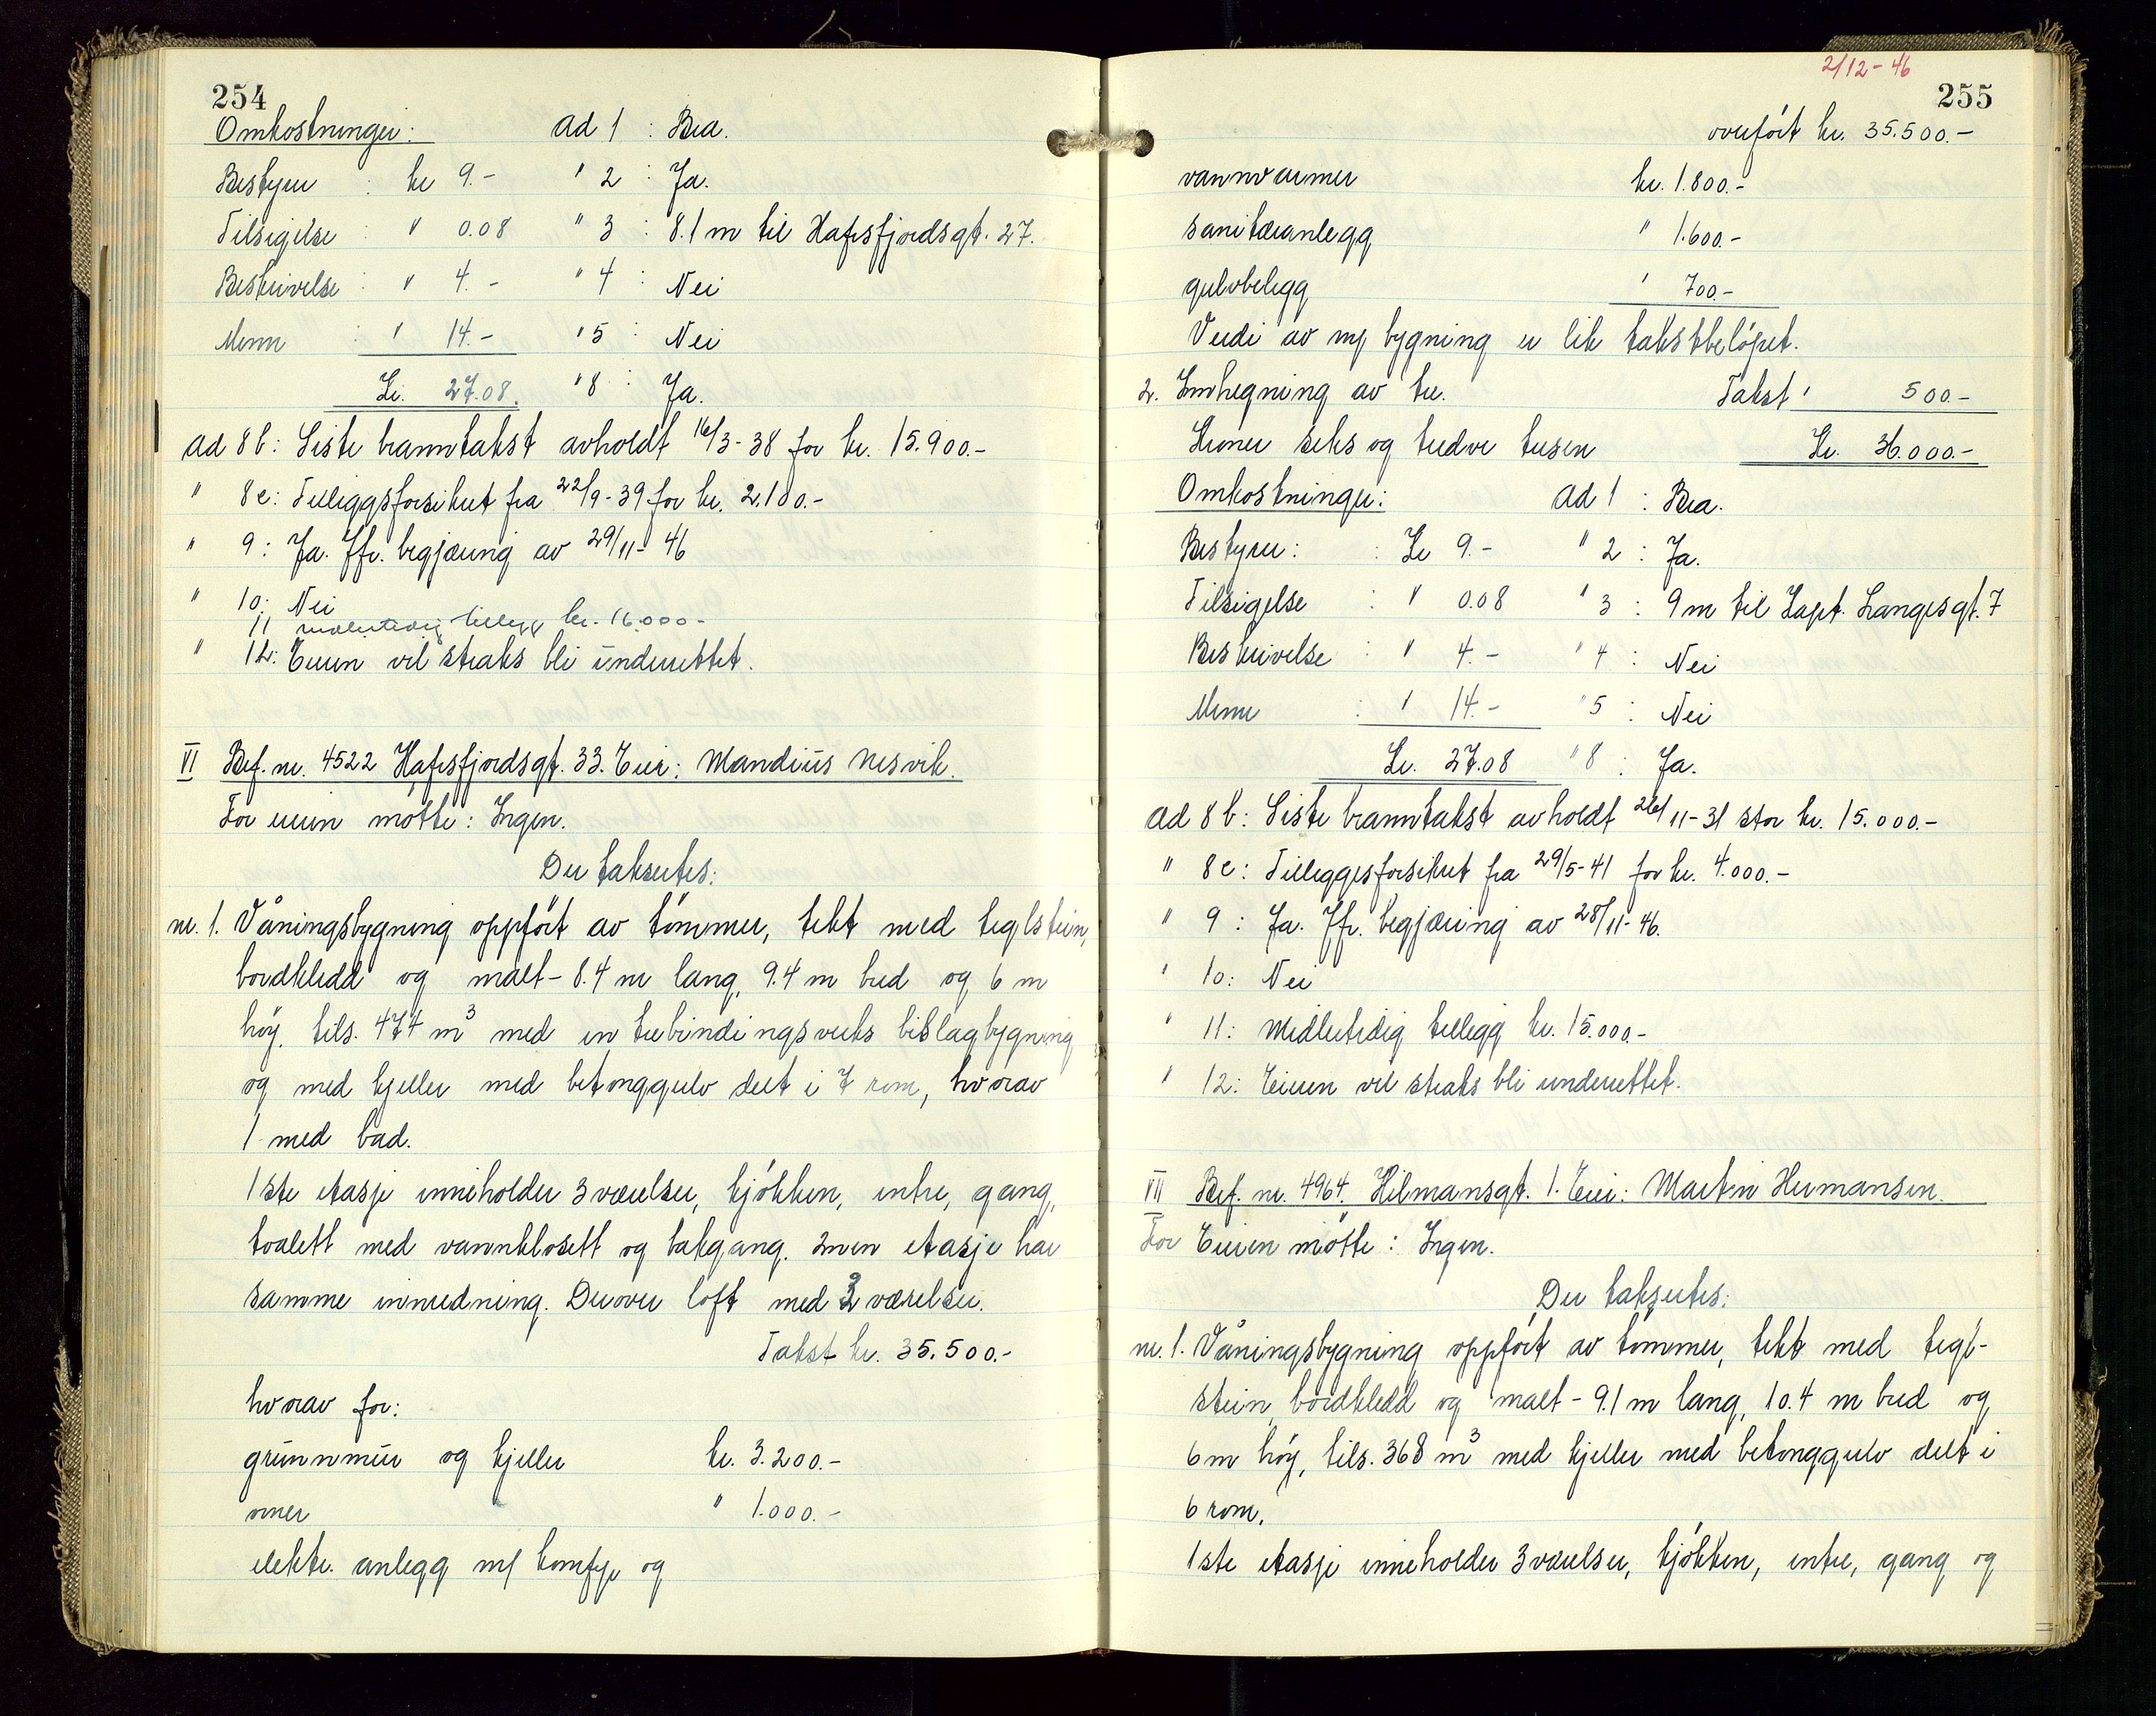 254
Omkostninger: ad 1 : Bra.
Bestyrer : kr 9.- " 2 : Ja.
Tilsigelse : " 0.08 " 3 : 8.1 m til Hafrsfjordsgt. 27.
Beskrivelse : " 4.- " 4 : Nei
Menn : " 14.- " 5 : Nei
Kr. 27.08. " 8 : Ja.
ad 8 b: Siste branntakst avholdt 16/3-38 for kr. 15.900.-
" 8 c: Tilleggsforsikret fra 22/9-39 for kr. 2.100.-
" 9: Ja. Jfr. begjæring av 29/11-46
" 10: Nei
11 midlertidig tillegg kr. 16.000-
" 12: Eieren vil straks bli underrettet.
VI Brf. nr. 4522 Hafrsfjordsgt. 33. Eier: Mandius Nesvik.
For eieren møtte: Ingen.
Der takseres:
nr. 1. Våningsbygning oppført av tømmer, tekt med teglstein,
bordkledd og malt - 8.4 m lang, 9.4 m bred og 6 m
høy. tils. 474 m³ med en trebindingsverks bislagbygning
og med kjeller med betonggulv delt i 7 rom, hvorav
1 med bad.
1ste etasje inneholder 3 værelser, kjøkken, entre, gang,
toalett med vannklosett og bakgang. 2nen etasje har
samme innredning. Derover loft med 2 værelser.
Takst kr. 35.500.-
hvorav for:
grunnmur og kjeller kr. 3.200.-
ovner " 1.000.-
elektr. anlegg m/ komfyr og
2/12-46
255
overført kr. 35.500.-
vannvarmer kr. 1.800.-
sanitæranlegg " 1.600.-
gulvbelegg " 700.-
Verdi av ny bygning er lik takstbeløpet.
2. Innhegning av tre. Takst " 500.-
Kroner seks og tredve tusen Kr. 36.000.-
Omkostninger: ad 1 : Bra.
Bestyrer: : Kr 9.- " 2 : Ja.
Tilsigelse : " 0.08 " 3 : 9 m til Kapt. Langesgt. 7
Beskrivelse : " 4.- " 4 : Nei
Menn : " 14.- " 5 : Nei
Kr. 27.08 " 8 : Ja.
ad 8 b: Siste branntakst avholdt 26/11-31 stor kr. 15.000.-
" 8 c: Tilleggsforsikret fra 29/5-41 for kr. 4.000.-
" 9 : Ja. Jfr. begjæring av 28/11-46.
" 10: Nei
" 11: Midlertidig tillegg kr. 15.000.-
" 12: Eieren vil straks bli underrettet.
VII Brf. nr. 4964. Hilmansgt. 1. Eier: Martin Hermansen.
For Eieren møtte: Ingen.
Der takseres:
nr. 1. Våningsbygning oppført av tømmer, tekt med tegl-
stein, bordkledd og malt - 9.1 m lang, 10.4 m bred og
6 m høy, tils. 368 m³ med kjeller med betonggulv delt i
6 rom.
1ste etasje inneholder 3 værelser, kjøkken, entre, gang og